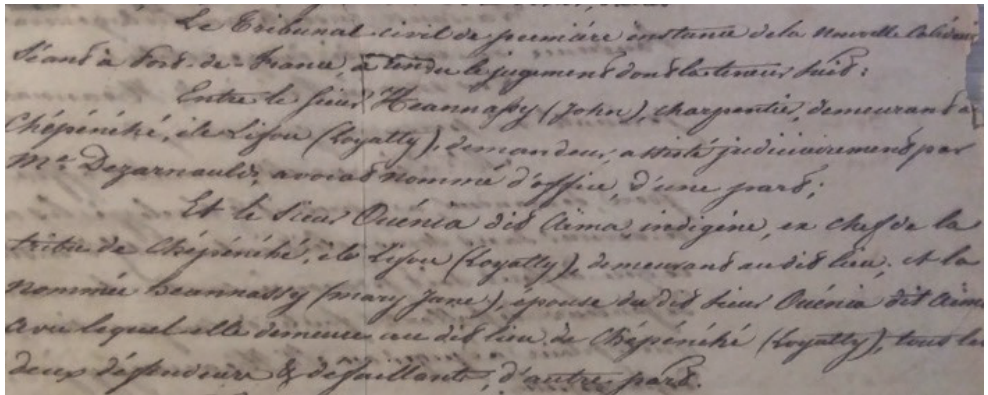 Le Tribunal civil de première instance de la Nouvelle Calédonie
Séant à Port-de-France, a rendu le jugement dont la teneur suit:
Entre le sieur (John) charpentier, demeurant à
Chépénéhé, île Lifou (Loyalty), demandeur, assisté judiciairement par
Me Dezarnaulds, avocat nommé d'office, d'une part;
Et le sieur Ouénia dit Aima, indigène, ex chef de la
tribu de Chépénéhé, île Lifou (Loyalty), demeurant au dit lieu, et la
nommée (Mary Jane), épouse du dit sieur Ouénia dit Aima
avec lequel elle demeure au dit lieu de Chépénéhé (Loyalty), tous les
deux défendeurs & défaillants, d'autre part.